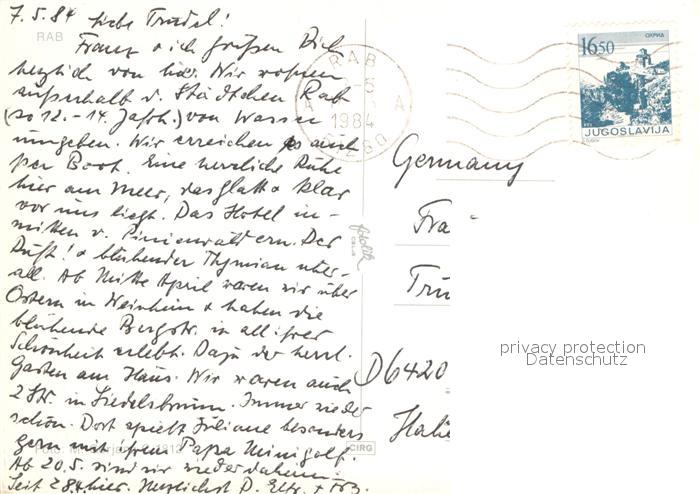 7.5.84 Liebe Trudel!
RAB
Franz + ich grüßen Dich
herzlich von hier. Wir wohnen
außerhalb v. Städtchen Rab
(so 12.-14. Jahrh.) von Wasser
umgeben. Wir erreichen es auch
per Boot. Eine herrliche Ruhe
hier am Meer, das glatt + klar
vor uns liegt. Das Hotel in-
mitten v. Pinienwäldern. Der
Duft! + blühender Thymian über-
all. Ab Mitte April waren wir über
Ostern in Weinheim + haben die
blühende Bergstr. in all ihrer
Schönheit erlebt. Dazu der herrl.
Garten am Haus. Wir waren auch
2 Std. in Siedelsbrunn. Immer wieder
schön. Dort spielt Juliane besonders
gern mit ihrem Papa Minigolf.
Ab 20.5. sind wir wieder daheim.
Seit 28.4. hier. Herzlichst D.
RAB
1984
51280
16.50
ОХРИД
JUGOSLAVIJA
Germany
Fra
Tru
D 6420
CIRG
privacy protection
Datenschutz